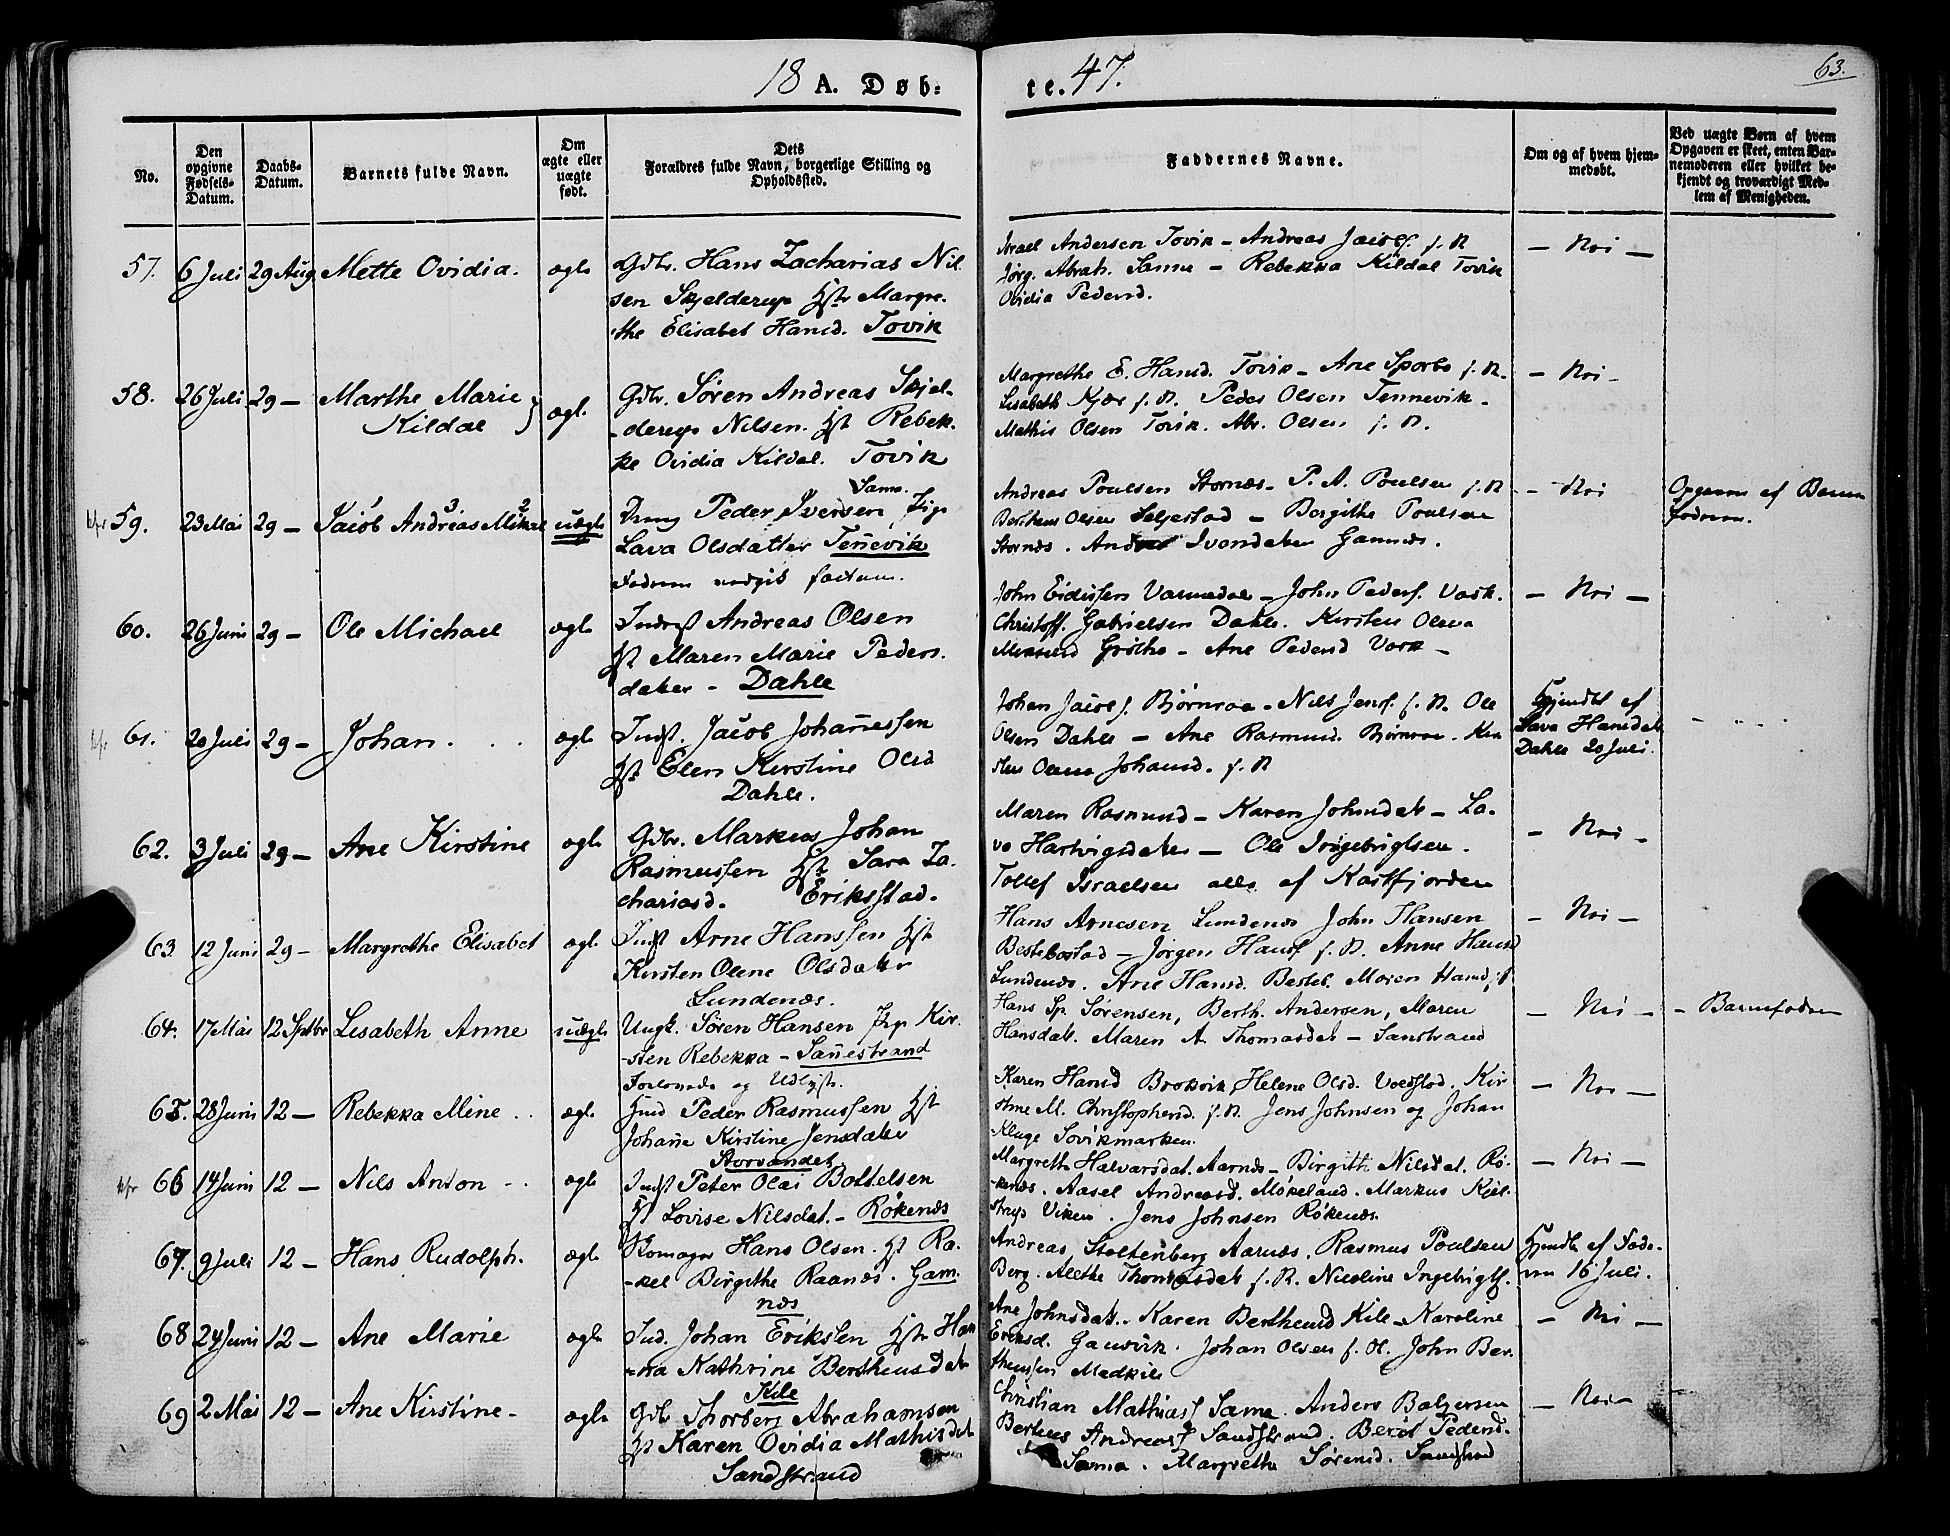 18 A. Døb:
te. 47.
63.
No.
Den opgivne Fødsels-Datum.
Daabs-Datum.
Barnets fulde Navn.
Om ægte eller uægte født.
Dets Forældres fulde Navn, borgerlige Stilling og Opholdssted.
Faddernes Navne.
Om og af hvem hjemmedøbt.
Ved uægte Børn af hvem Opgaven er skeet, enten Barnemoderen eller hvilket bekjendt og troværdigt Medlem af Menigheden.
57. 6 Juli 29 Aug. Mette Ovidia. ægte
Gdbr. Hans Zacharias Nil
sen Skjelderup Hstr Margre
the Elisabet Hansd. Tovik
Israel Andersen Tovik – Andreas Jacobs. f. N
Jørg. Abrah. Sanne – Rebekka Kildal Tovik
Ovidia Pedersd.
– Nei –
58. 26 Juli 29 – Marthe Marie
Kildal ægte
Gdbr. Søren Andreas Skjel
-derup Nilsen. Hst Rebek
ke Ovidia Kildal. Tovik
Margrethe E. Hansd. Tovik – Ane Sporbo f. N.
Lisabeth Kjær f. N. Peder Olsen Tennevik –
Mathis Olsen Tovik. Abr. Olsen f. N.
– Nei –
59. 23 Mai 29 – Jacob Andreas Mikal uægte
Same.
Ung Peder Iversen, Pig
Lava Olsdatter Tennevik
Andreas Poulsen Stornæs – P. A. Poulsen f. N
Bertheus Olsen Seljestad – Bergithe Poulsen
Stornæs.
– Nei
Opgaven af Barne
faderen.
60. 26 Juni 29 – Ole Michael ægte
Inderst Andreas Olsen
Hst Maren Marie Peders
datter – Dahle
John Eidissen Varmedal – John Peders. Vask.
Christoff. Gabrielsen Dahle. Kirsten Olena
– Ane Pedersd Vask –
– Nei –
61. 20 Juli 29 – Johan. ægte
Indst. Jacob Johannessen
Hst Elen Kirstine Olsd
Dahle.
Johan Jacobs. Bjørnraa – Nils Jens. f. N. Ole
Olsen Dahle – Ane Rasmusd. Bjørnraa. Kir
sten Olena Johansd. f. N
Hjemdbt af
Lava Hansdat
Dahle 20 Juli.
62. 3 Juli 29 – Ane Kirstine ægte
Gdbr. Markus Johan
Rasmussen Hst Sara Za
chariasd. Eriksstad.
Maren Rasmusd – Karen Johnsdat – La-
va Hartvigsdatter – Ole Ingebrigtsen.
Tollef Israelsen alle af Kastfjorden
– Nei –
63 12 Juni 29 – Margrethe Elisabet ægte
Indst Arne Hanssen Hst
Kirsten Olene Olsdatter
Sundenæs.
Hans Arnesen Sundenæs John Hansen
Bestebostad – Jørgen Hans. f. N. Anne Hansd
Sundenæs. Ane Hansd. Besteb. Maren Hansd. f. N
– Nei –
64. 17 Mai 12 Septbr Lisabeth Anne uægte
Ungk. Søren Hansen Pig Kir
-sten Rebekka – Sannestrand
Forlovede og Udlyste.
Hans Sp. Sørensen, Berth. Andersen, Maren
Hansdat. Maren A. Thomasdat – Sandstrand
– Nei –
– Barnefaderen
65. 28 Juni 12 – Rebekka Mine ægte
Huusd Peder Rasmussen Hst
Johanne Kirstine Jensdatter
Storvandet
Karen Hansd Brokvik Helene Olsd. Voldstad. Kir
stine M. Christophersd. f. N. Jens Johnsen og Johan
Kluge Sørvikmarken.
– Nei –
66 14 Juni 12 – Nils Anton ægte
Indst Peter Olai Bottelsen
Hst Lovise Nilsdat. – Røkenæs
Margreth Halvarsdat. Aarnæs – Birgitte Nilsdat. Rø-
kenæs. Aasel Andreasd. Møkeland. Markus Kjel
strup Viken. Jens Johnsen Røkenæs.
– Nei –
67. 9 Juli 12 – Hans Rudolph. ægte
Skomager Hans Olsen. Hst Ra-
-kel Birgithe Raanæs. Gam
næs
Andreas Stoltenberg Aarnæs. Rasmus Poulsen
Berg. Alethe Thomasdat f. N. Nicoline Ingebrigts.
Hjemdbt af Fade-
ren 16 Juli.
68 24 Juni 12 – Ane Marie ægte
Ind. Johan Eriksen Hstr Han
-na Kathrine Bertheusdat
Kile
Ane Johnsdat. Karen Bertheusd Kile – Karoline
Eriksd. Gausvik. Johan Olsen f. N. John Ber
theussen Medkile
– Nei –
69 2 Mai 12 – Ane Kirstine – ægte
Gdbr Thorberg Abrahamsen
Hst Karen Ovidia Mathisdat
Sandstrand
Christian Mathiass Sama. Anders Balzersen
Bertheus Andreass Sandstrand. Berit Pedersd.
Sama. Margrethe Sørensd. Sandstrand
– Nei –